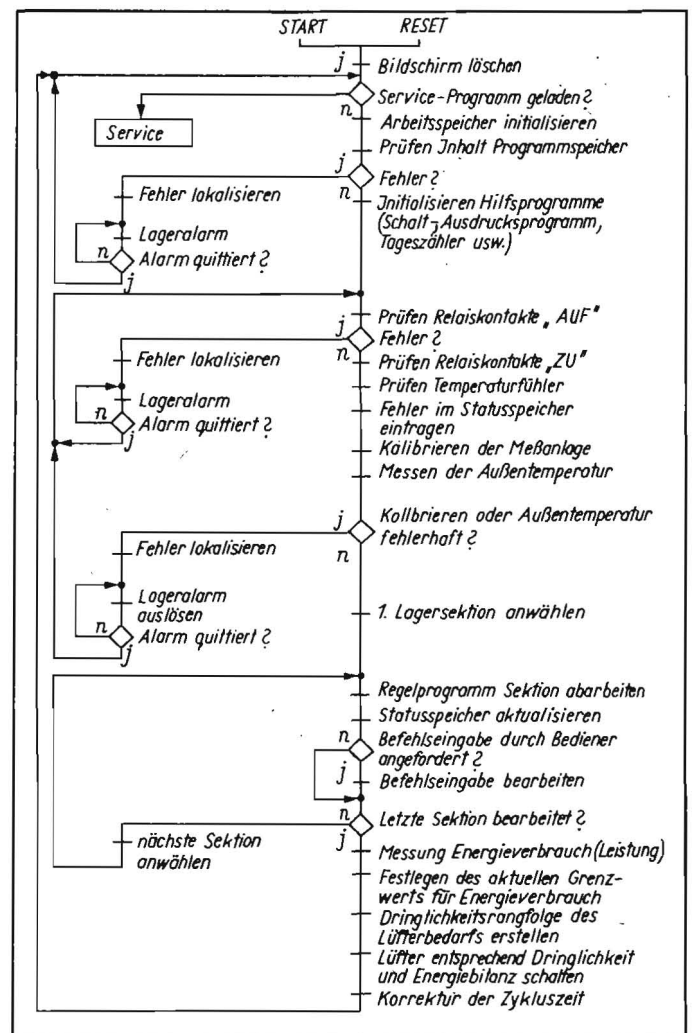 START RESET
j
Bildschirm löschen
Service-Programm geladen?
n
Service
Arbeitsspeicher initialisieren
Prüfen Inhalt Programmspeicher
j
Fehler?
n
Fehler lokalisieren
Initialisieren Hilfsprogramme
(Schalt-, Ausdrucksprogramm,
Tageszähler usw.)
Lageralarm
n
Alarm quittiert?
j
Prüfen Relaiskontakte „AUF"
j
Fehler?
n
Fehler lokalisieren
Prüfen Relaiskontakte „ZU"
Prüfen Temperaturfühler
Lageralarm
Fehler im Statusspeicher
eintragen
n
Alarm quittiert?
j
Kalibrieren der Meßanlage
Messen der Außentemperatur
j
Kolibrieren oder Außentemperatur
fehlerhaft?
n
Fehler lokalisieren
Lageralarm
auslösen
1. Lagersektion anwählen
n
Alarm quittiert?
j
Regelprogramm Sektion abarbeiten
Statusspeicher aktualisieren
n
Befehlseingabe durch Bediener
angefordert?
j
Befehlseingabe bearbeiten
n
Letzte Sektion bearbeitet?
j
nächste Sektion
anwählen
Messung Energieverbrauch (Leistung)
Festlegen des aktuellen Grenz-
werts für Energieverbrauch
Dringlichkeitsrangfolge des
Lüfterbedarfs erstellen
Lüfter entsprechend Dringlichkeit
und Energiebilanz schalten
Korrektur der Zykluszeit